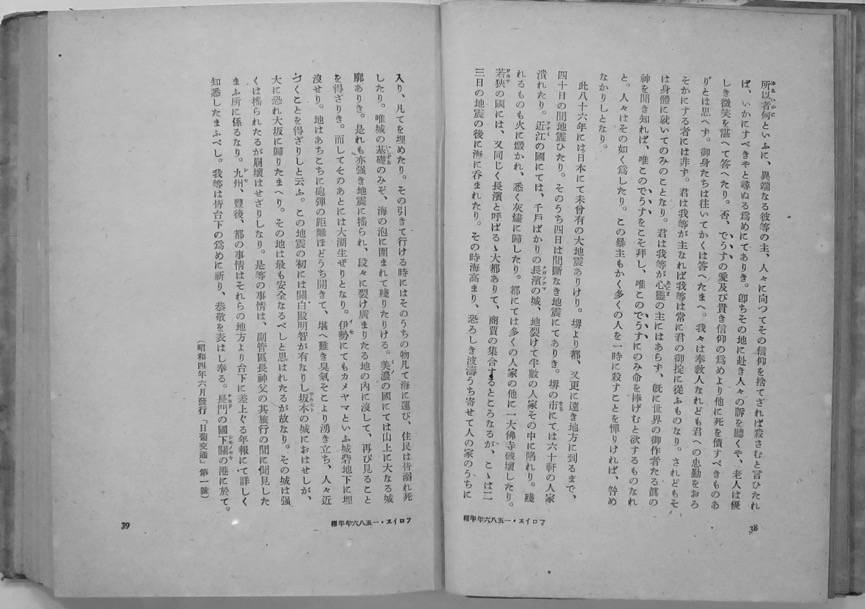 所以者何といふに、異端なる彼等の主、人々に向つてその信仰を捨てざれば殺さむと言ひたれ
ば、いかにすべきやと尋ぬる爲めにてありき。卽ちその地に赴き人々の訴を聽くや、老人は優
しき微笑を湛へて答へたり。否、でうすの愛及び貴き信仰の爲めより他に死を價すべきものあ
りとは思へず。御身たちは往いてかくは答へたまへ。我々は奉敎人なれども君への忠勤をおろ
そかにする者には非ず。君は我等が主なれば我等は常に君の御掟に從ふものなり。されどもそ
は身體に就いてのみのことなり。君は我等が心靈の主にはあらず、旣に世界の御作者たる眞の
神を聞き知れば、唯このでうすをこそ拜し、唯このでうすにのみ命を捧げむと欲するものなれ
と。人々はその如く爲したり。この暴主もかく多くの人を一時に殺すことを憚りければ、咎め
なかりしとなり。
此八十六年には日本にて未曾有の大地震ありけり。堺より都、又更に遠き地方に到るまで、
四十日の間地震ひたり。そのうち四日は間斷なき地震にてありき。堺の市にては六十軒の人家
潰れたり。近江の國にては、千戶ばかりの長濱の城、地裂けて半數の人家その中に陷れり。殘
れるものも火に燬かれ、悉く灰燼に歸したり。都にては多くの人家の他に一大佛寺破壞したり。
若狹の國には、又同じく長濱と呼ばるゝ大都ありて、商賈の集合するところなるが、こゝは二
三日の地震の後に海に呑まれたり。その時海高まり、恐ろしき波濤うち寄せて人の家のうちに
フロイス・一五八六年年報
38
入り、凡てを埋めたり。その引きて行ける時にはそのうちの物凡て海に運び、住民は皆溺れ死
したり。唯城の基礎のみぞ、海の泡に圍まれて殘りたりける。美濃の國にては山上に大なる城
廓ありき。是れも亦强き地震に搖られ、段々に裂け廣まりたる地の內に沒して、再び見ること
を得ざりき。而してそのあとには大湖生ぜりとなり。伊勢にてもカメヤマといふ城砦地下に埋
沒せり。地はあちこちに砲彈の距離ほどうち開きて、堪へ難き臭氣そこより湧き立ち、人々近
づくことを得ざりしと云ふ。この地震の初には關白殿明智が有なりし坂本の城におはせしが、
大に恐れ大坂に歸りたまへり。その地は最も安全なるべしと思はれたるが故なり。その城は强
くは搖られたるが崩壞はせざりしなり。是等の事情は、副管區長神父の其旅行の間に聞見した
まふ所に係るなり。九州、豐後、都の事情はそれらの地方より台下に差上ぐる年報にて詳しく
知悉したまふべし。我等は皆台下の爲めに祈り、恭敬を表はし奉る。長門の國下關の港に於て。
(昭和四年六月發行「日葡交通」第一號)
フロイス・一五八六年年報
39